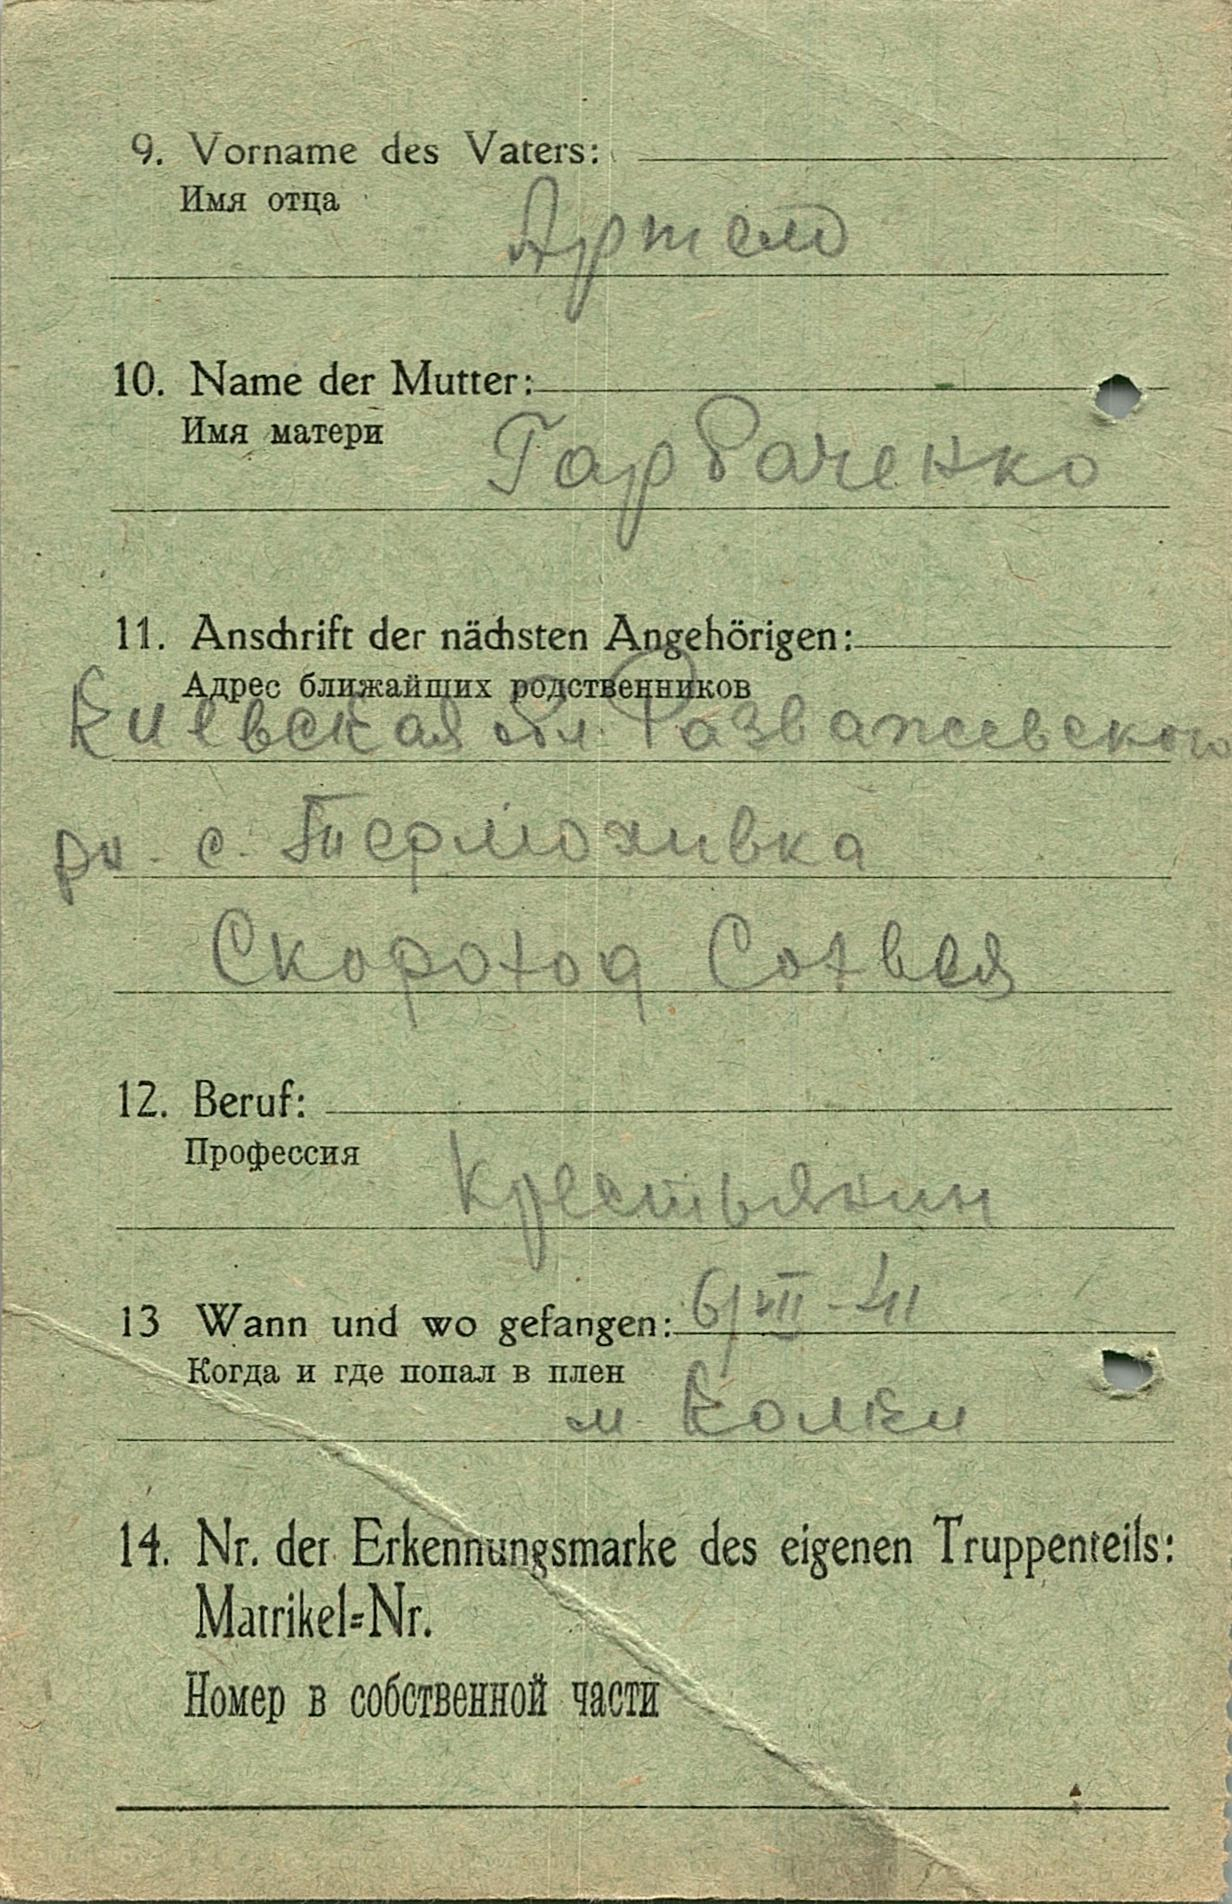 9. Vorname des Vaters:
Имя отца
Артем
10. Name der Mutter:
Имя матери
Гарбаченко
11. Anschrift der nächsten Angehörigen:
Адрес ближайших родственников
Киевская обл. Розважевского
рн. с. Термаховка
Скороход Софья
12. Beruf:
Профессия
Крестьянин
13 Wann und wo gefangen: 6/VIII-41
Когда и где попал в плен
м. Колки
14. Nr. der Erkennungsmarke des eigenen Truppenteils:
Matrikel=Nr.
Номер в собственной части